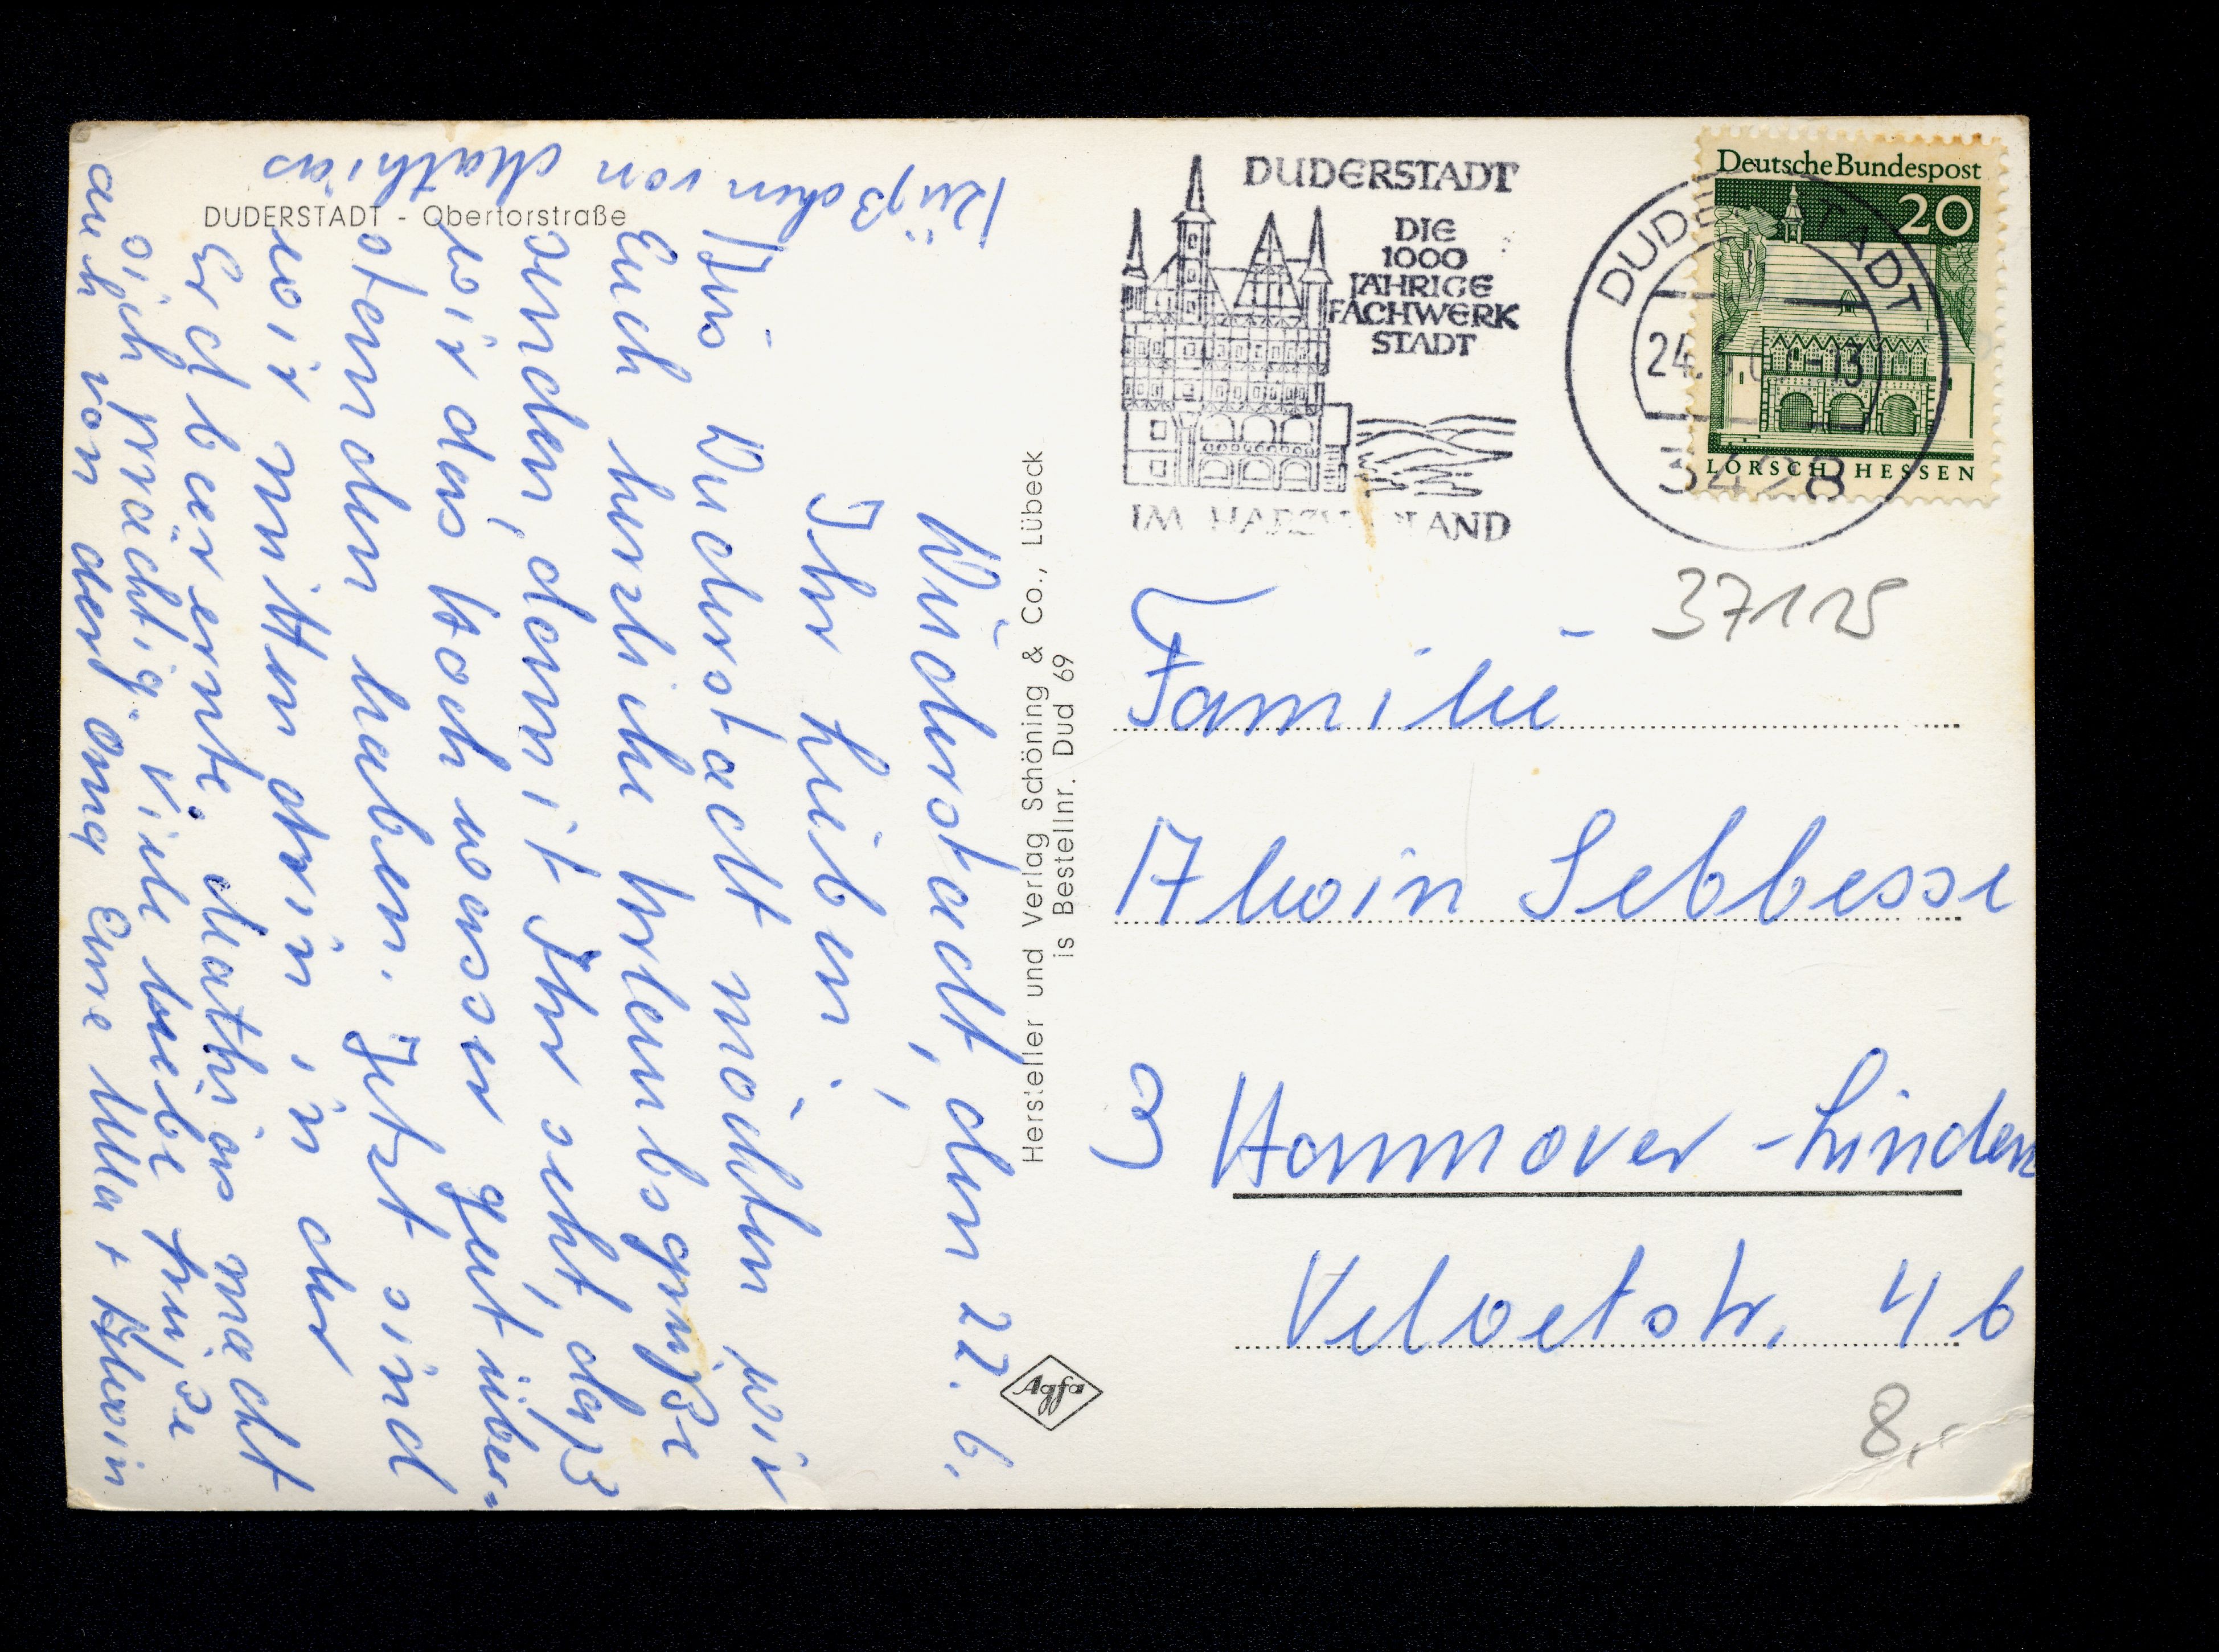 DUDERSTADT - Obertorstraße
Duderstadt, den 22. 6.
Ihr Lieben!
Aus Duderstadt möchten wir
Euch herzliche Urlaubsgrüße
senden, damit Ihr seht, daß
wir das Hochwasser gut über=
standen haben. Jetzt sind
wir mitten drin, in der
Erdbeerernte. Mathias macht
sich prächtig. Viele liebe Grüße
auch von der Oma Eure Ulla + Alwin
Küßchen von Mathias
Hersteller und Verlag Schöning & Co., Lübeck
is Bestellnr. Dud 69
Agfa
DUDERSTADT
DIE
1000
JÄHRIGE
FACHWERK
STADT
IM HARZVORLAND
DUDERSTADT
24. -13
3428
Deutsche Bundespost
20
LORSCH/HESSEN
37115
Familie
Alwin Sebbesse
3 Hannover-Linden
Velvetstr. 4 b
8,-